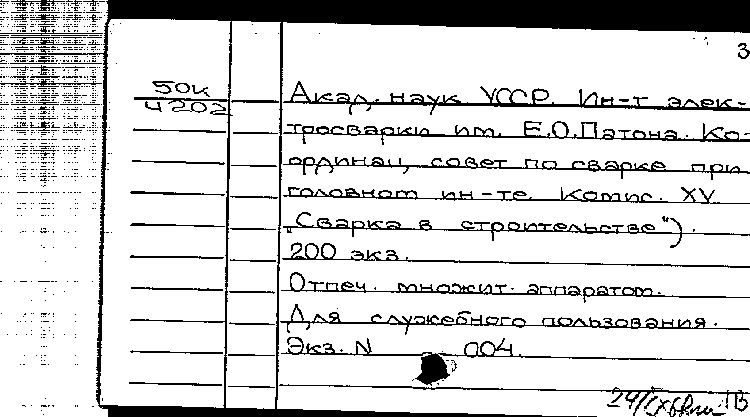 3
50к
4202
Акад. наук УССР. Ин-т элек-
тросварки им. Е.О.Патона. Ко-
ординац. совет по сварке при
головном ин-те. Комис. XV
„Сварка в строительстве").
200 экз.
Отпеч. множит. аппаратом.
Для служебного пользования.
Экз. N 004.